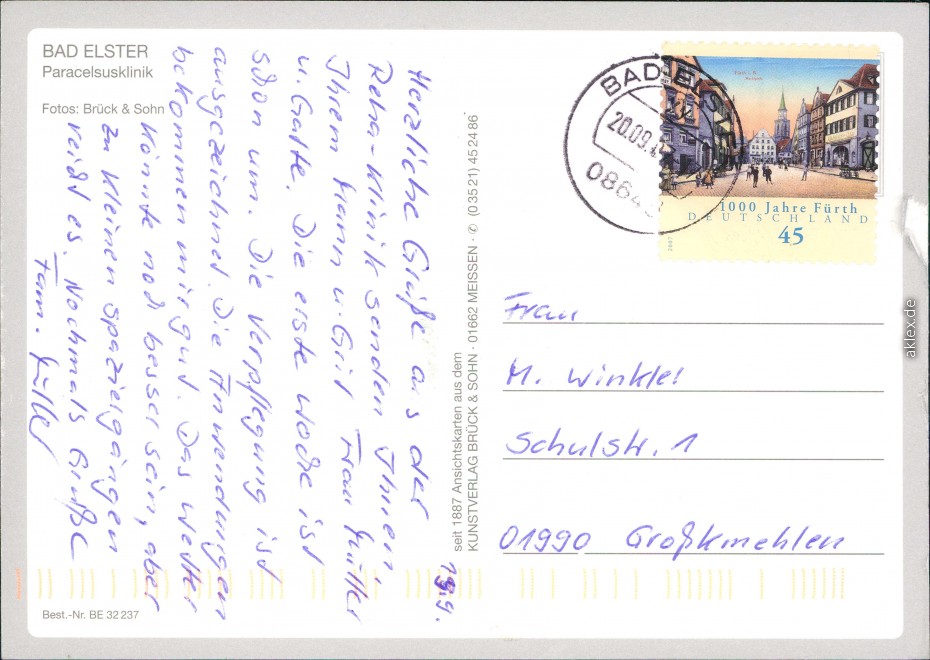 BAD ELSTER
Paracelsusklinik
Fotos: Brück & Sohn
19.9.
Herzliche Grüße aus der
Reha-Klinik senden Ihnen,
Ihrem Mann u. Frau Müller
u. Gatte. Die erste Woche ist
schon um. Die Verpflegung ist
ausgezeichnet. Die Anwendungen
bekommen mir gut. Das Wetter
könnte noch besser sein, aber
zu kleinen Spaziergängen
reicht es. Nochmals Grüße
Fam. Müller
Best.-Nr. BE 32 237
seit 1887 Ansichtskarten aus dem
KUNSTVERLAG BRÜCK & SOHN · 01662 MEISSEN · ✆ (0 35 21) 45 24 86
BAD ELS
20.09.
0864
1000 Jahre Fürth
DEUTSCHLAND
45
2007
Frau
M. Winkler
Schulstr. 1
01990 Großkmehlen
aklex.de